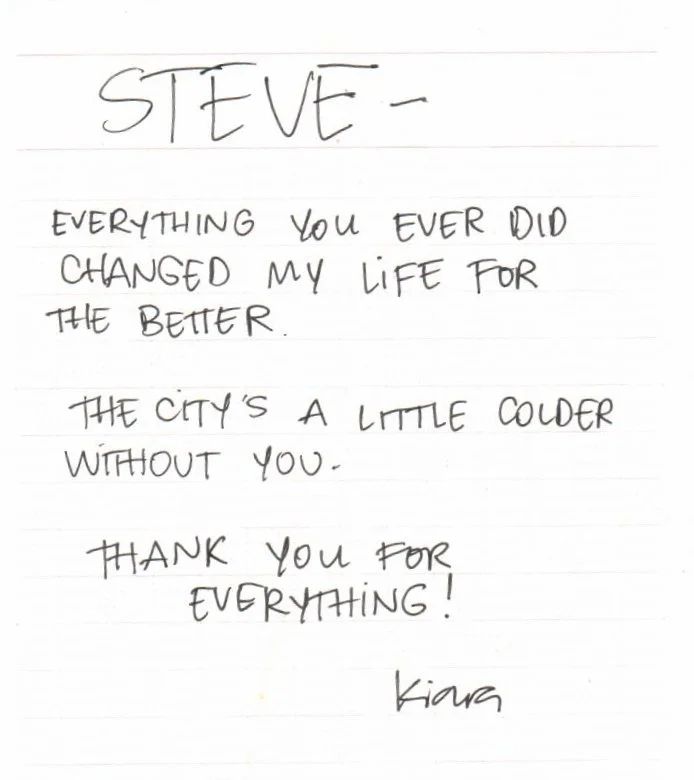 STEVE -
EVERYTHING YOU EVER DID
CHANGED MY LiFE FOR
THE BETTER.
THE CiTY'S A LITTLE COLDER
WITHOUT YOU.
THANK YOU FOR
EVERYTHiNG!
Kiara